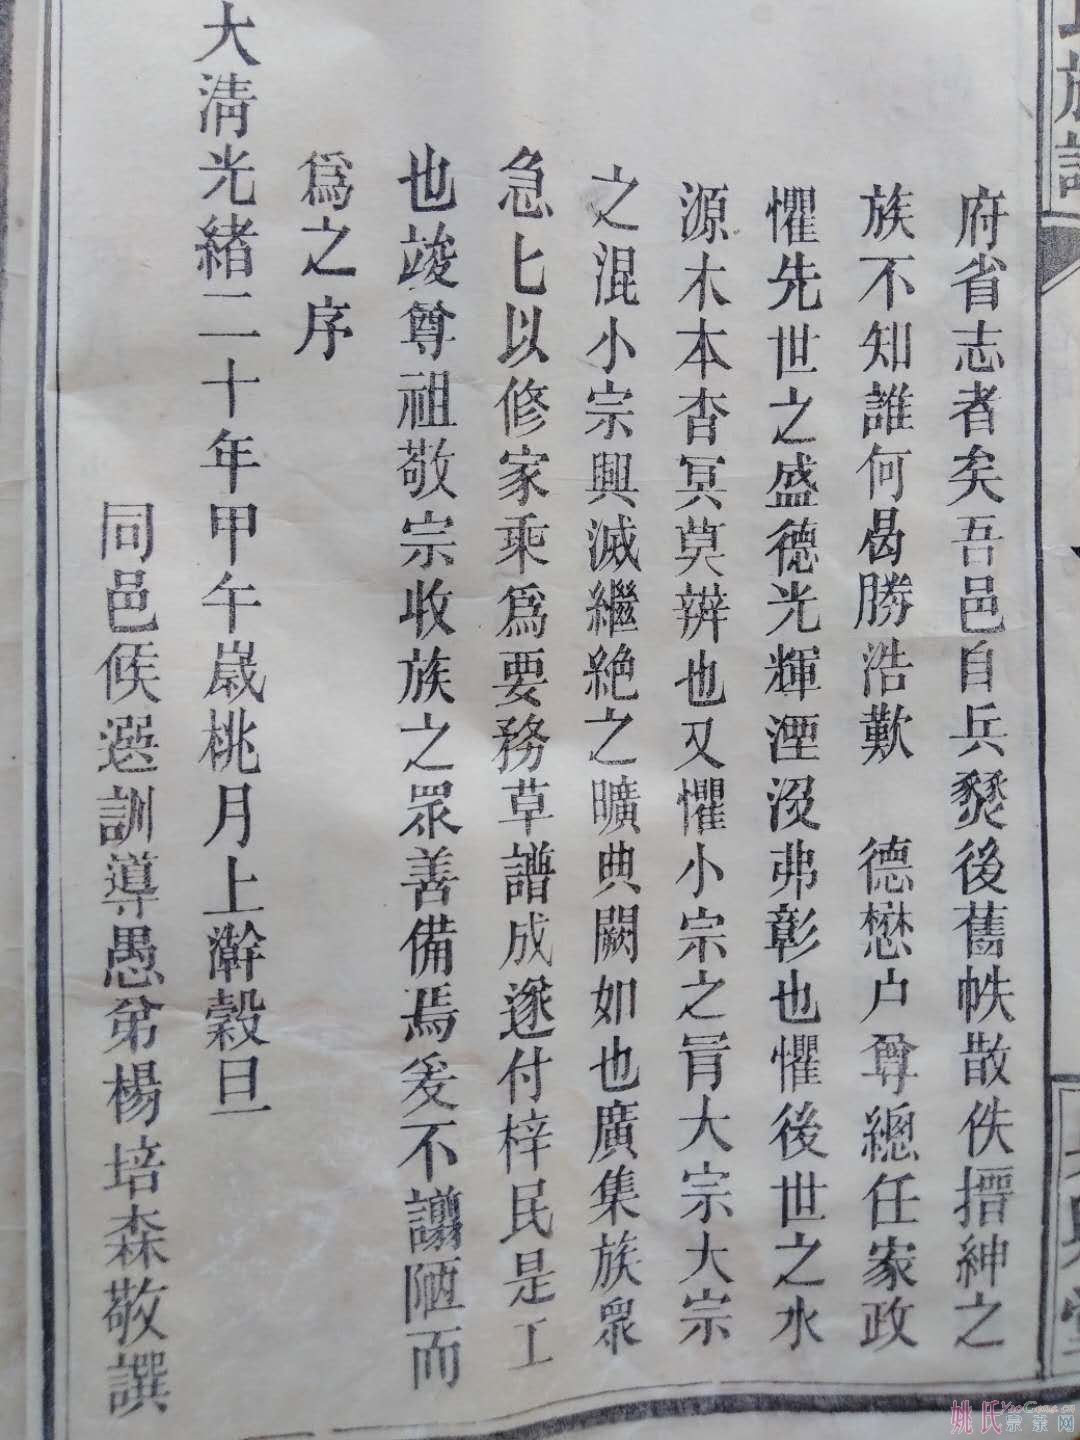 族譜
府省志者矣吾邑自兵燹後舊帙散佚搢紳之
族不知誰何曷勝浩歎　德懋户尊總任家政
懼先世之盛德光輝湮沒弗彰也懼後世之水
源木本杳冥莫辨也又懼小宗之胥大宗大宗
之混小宗興滅繼絶之曠典闕如也廣集族眾
急匕以修家乘爲要務草譜成遂付梓民是工
也竣尊祖敬宗收族之眾善備焉爰不譾陋而
爲之序
大淸光緒二十年甲午歲桃月上澣穀旦
同邑候選訓導愚弟楊培森敬譔
姚氏宗亲网
YaoGens.cn